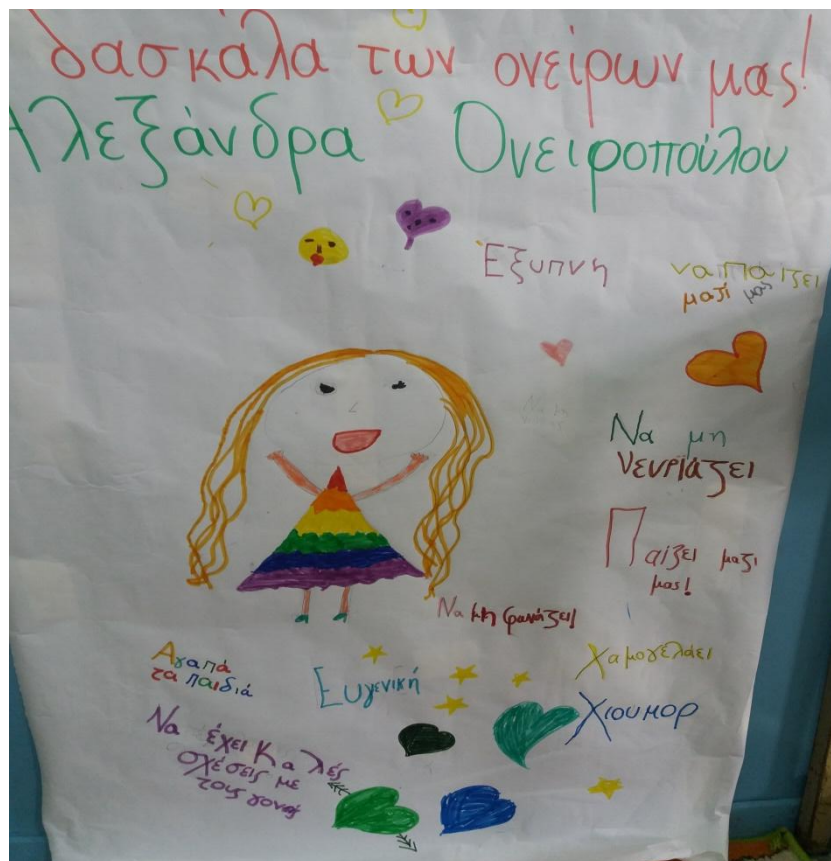 δασκάλα των ονείρων μας!
Αλεξάνδρα Ονειροπούλου
Έξυπνη
να παίζει
μαζί μας
Να μη
νευριάζει
Παίζει μαζί
μας!
Να μη φωνάζει!
Αγαπά
τα παιδιά
Ευγενική
Χαμογελάει
Χιουμορ
Να έχει Καλές
σχέσεις με
τους γονείς